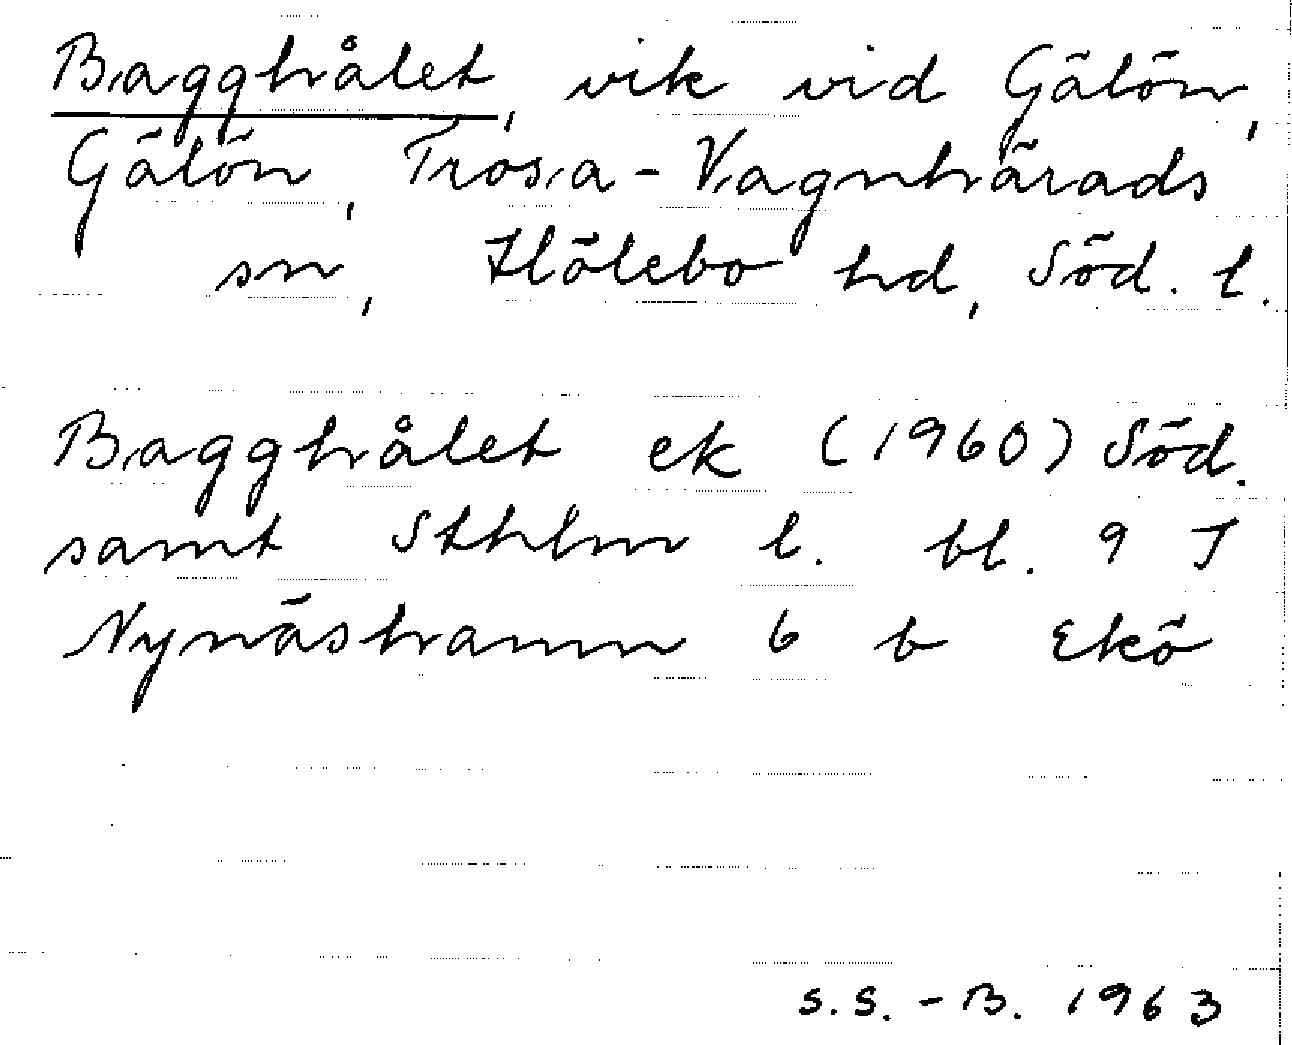 Bagghålet, vik vid Gälön,
Gälön, Trosa-Vagnhärads
sn, Hölebo hd, Söd. l.
Bagghålet ek (1960) Söd.
samt Sthlm l. bl. 9 J
Nynäshamn 6 b Ekö
S.S.-B. 1963